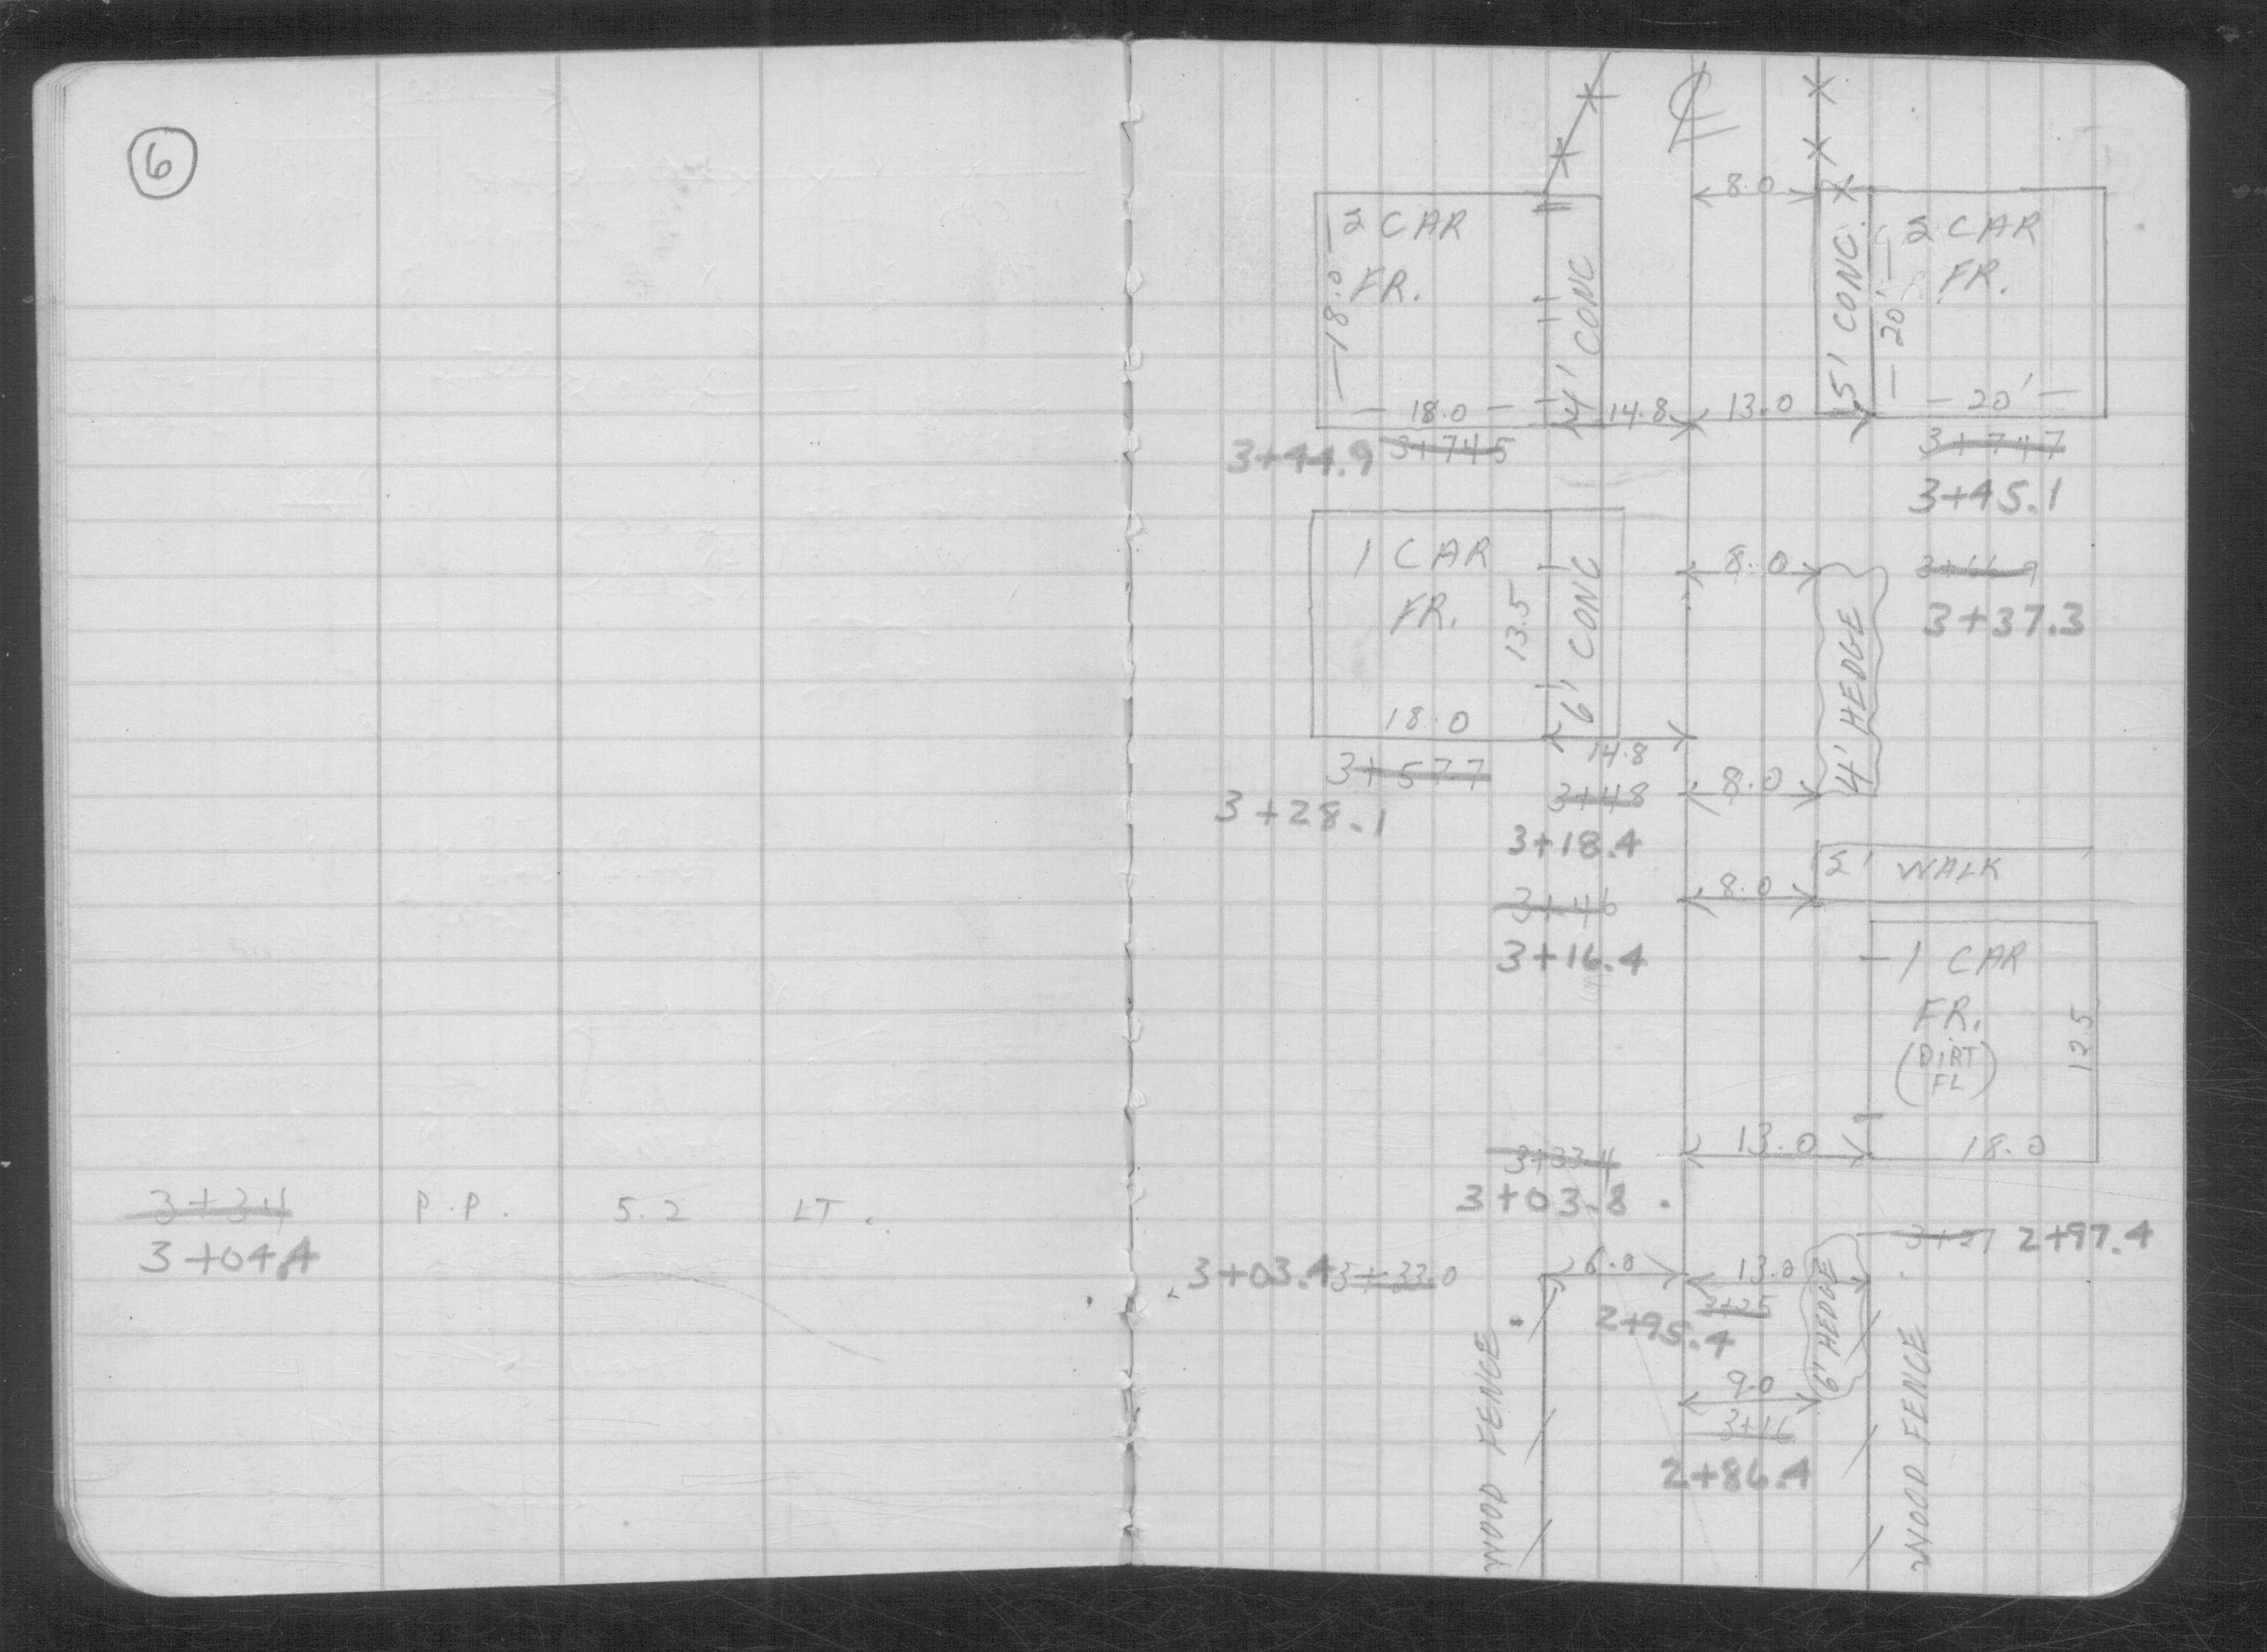 6
3+34
P.P. 5.2 LT.
3+04.4
℄
8.0
2 CAR
FR.
18.0
4' CONC
18.0
14.8
13.0
5' CONC.
2 CAR
FR.
20'
20'
3+44.9 3+74.5
3+74.7
3+45.1
1 CAR
FR.
13.5
6' CONC
18.0
14.8
8.0
3+37.3
4' HEDGE
3+57.7
3+28.1
3+48
8.0
3+18.4
2' WALK
8.0
3+46
3+16.4
1 CAR
FR.
(DIRT
FL)
12.5
18.0
13.0
3+33.4
3+03.8
3+27 2+97.4
3+03.4 3+33.0
6.0
13.0
3+25
2+95.4
6' HEDGE
9.0
3+16
2+86.4
WOOD FENCE
WOOD FENCE